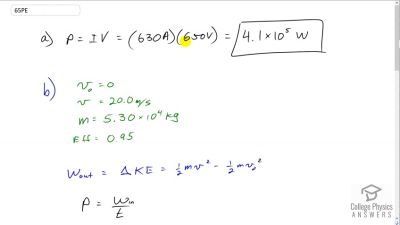 65PE
a) P = IV = (630A)(650V) = 4.1×10⁵ W
b)
v₀ = 0
v = 20.0 m/s
m = 5.30×10⁴ kg
Eff = 0.95
Wout = ΔKE = ½mv² - ½mv₀²
P = Win/t
College Physics
ANSWERS